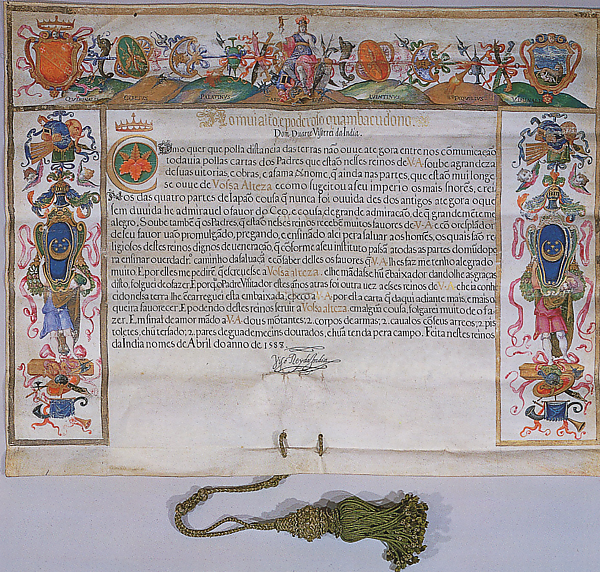 CELIUS
PALATINUS
AVENTINUS
Ao mui alto, e poderoso quambacudono.
Don Duarte Visorrei da India.
Como quer que polla distancia das terras não ouve ategora entre nos comunicação
todavia pollas cartas dos Padres que estão nesses reinos de V.A. soube a grandeza
de suas uitorias, e obras, e a fama do nome, q̃ ainda nas partes, que estão mui longe
se ouve de Vossa Alteza e como sugeitou a seu imperio os mais snorẽs, e rei
nos das quatro partes de lapão cousa q̃ nunca foi ouvida des dos antigos ategora o que
sem duvida he admirauel o fauor do Ceo, e cousa de grande admiração, de q̃ grandemẽte me
alegro, Soube tambẽ q̃ os Padres, que estão nesses reinos recebẽ muitos fauores de V.A. e cõ o resplãdor
de seu fauor uão promulgado, pregando, e ensinãdo a lei pera saluar aos homẽs, os quais são re
ligiosos destes reinos dignos de ueneração, q̃ conforme a seu instituto passã a todas as partes do mũdo pe
ra ensinar o uerdadrº caminho da saluação e cõ saber delles os fauores q̃ V.A. lhes faz me tenho alegrado
muito. E por elles me pedirẽ q̃ escreuesse a Vossa Alteza. e lhe mãdasse hũ ẽbaixador dandolhe as graças
disto, folguei de o fazer. E porq̃ o Padre Visitador estes años atras foi outra uez a esses reinos de V.A. e he ia conhe
cido nessa terra lhe ẽcarreguei esta embaixada, e peço a V.A. por esta carta q̃ daqui adiante mais, e mais o
queira fauorecer. E podendo destes reinos seruir a Vossa Alteza. em algũa cousa, folgarei muito de o fa
zer. E m sinal de amor mãdo a V.A. dous mõtantes; 2. corpos de armas; 2. caualos cõ seus arreos; 2. pis
toletes, e hũ tersado; 2. pares de guademecins dourados, e hũa tenda pera campo. Feita nestes reinos
da India no mes de Abril do anno de 1588.